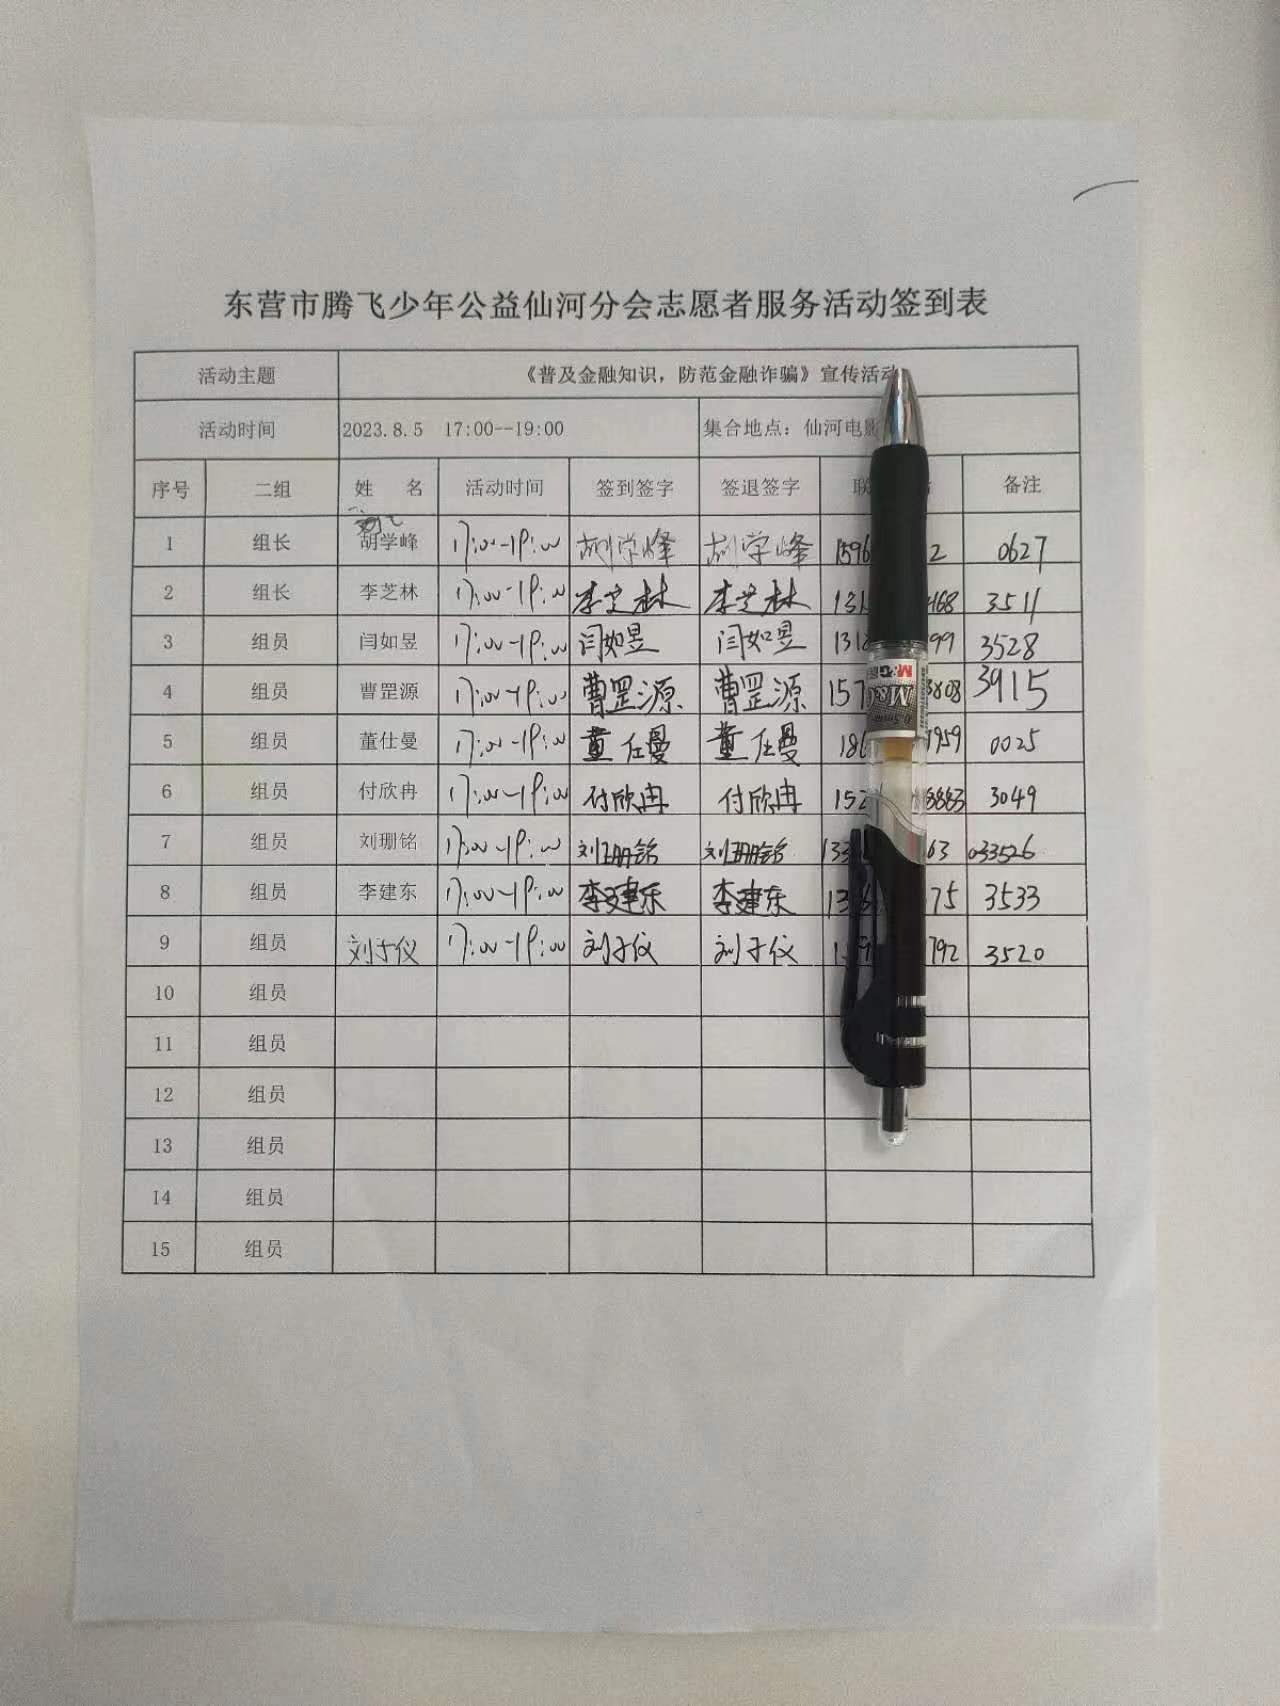 东营市腾飞少年公益仙河分会志愿者服务活动签到表
活动主题 《普及金融知识，防范金融诈骗》宣传活动
活动时间 2023.8.5 17:00--19:00 集合地点：仙河电影
序号 二组 姓 名 活动时间 签到签字 签退签字 联 备注
1 组长 胡学峰 17:00-19:00 胡学峰 胡学峰 1596 2 0627
2 组长 李芝林 17:00-19:00 李芝林 李芝林 131 468 3511
3 组员 闫如昱 17:00-19:00 闫如昱 闫如昱 131 99 3528
4 组员 曹罡源 17:00-19:00 曹罡源 曹罡源 157 3808 3915
5 组员 董仕曼 17:00-19:00 董仕曼 董仕曼 186 1959 0025
6 组员 付欣冉 17:00-19:00 付欣冉 付欣冉 152 8883 3049
7 组员 刘珊铭 17:00-19:00 刘珊铭 刘珊铭 133 63 033526
8 组员 李建东 17:00-19:00 李建东 李建东 13 75 3533
9 组员 刘子仪 17:00-19:00 刘子仪 刘子仪 792 3520
10 组员
11 组员
12 组员
13 组员
14 组员
15 组员
M&G